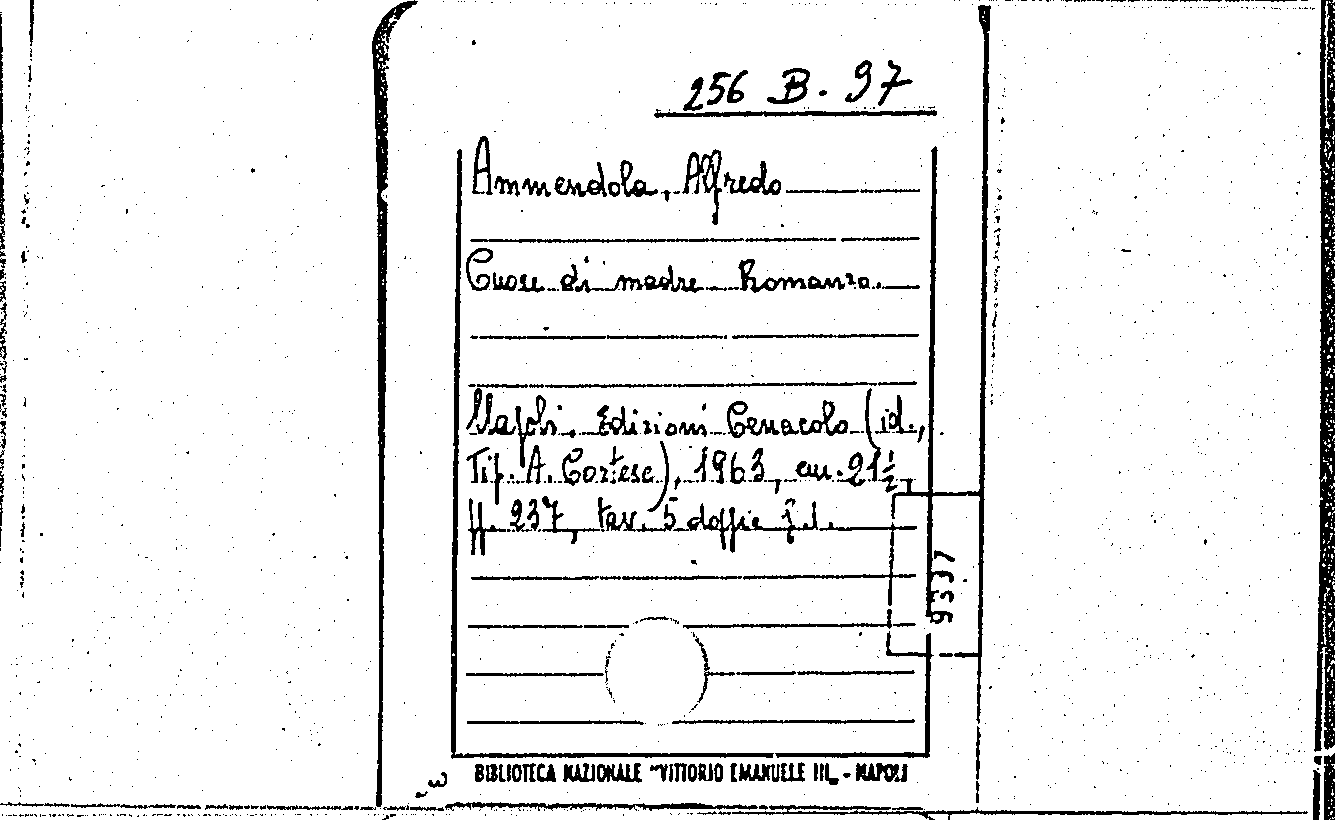 256 B. 97
Ammendola, Alfredo
Cuore di madre. Romanzo.
Napoli, Edizioni Cenacolo (id.,
Tip. A. Cortese), 1963, cm. 21½,
pp. 237, tav. 5 doppie f. t.
9337
BIBLIOTECA NAZIONALE "VITTORIO EMANUELE III„ - NAPOLI